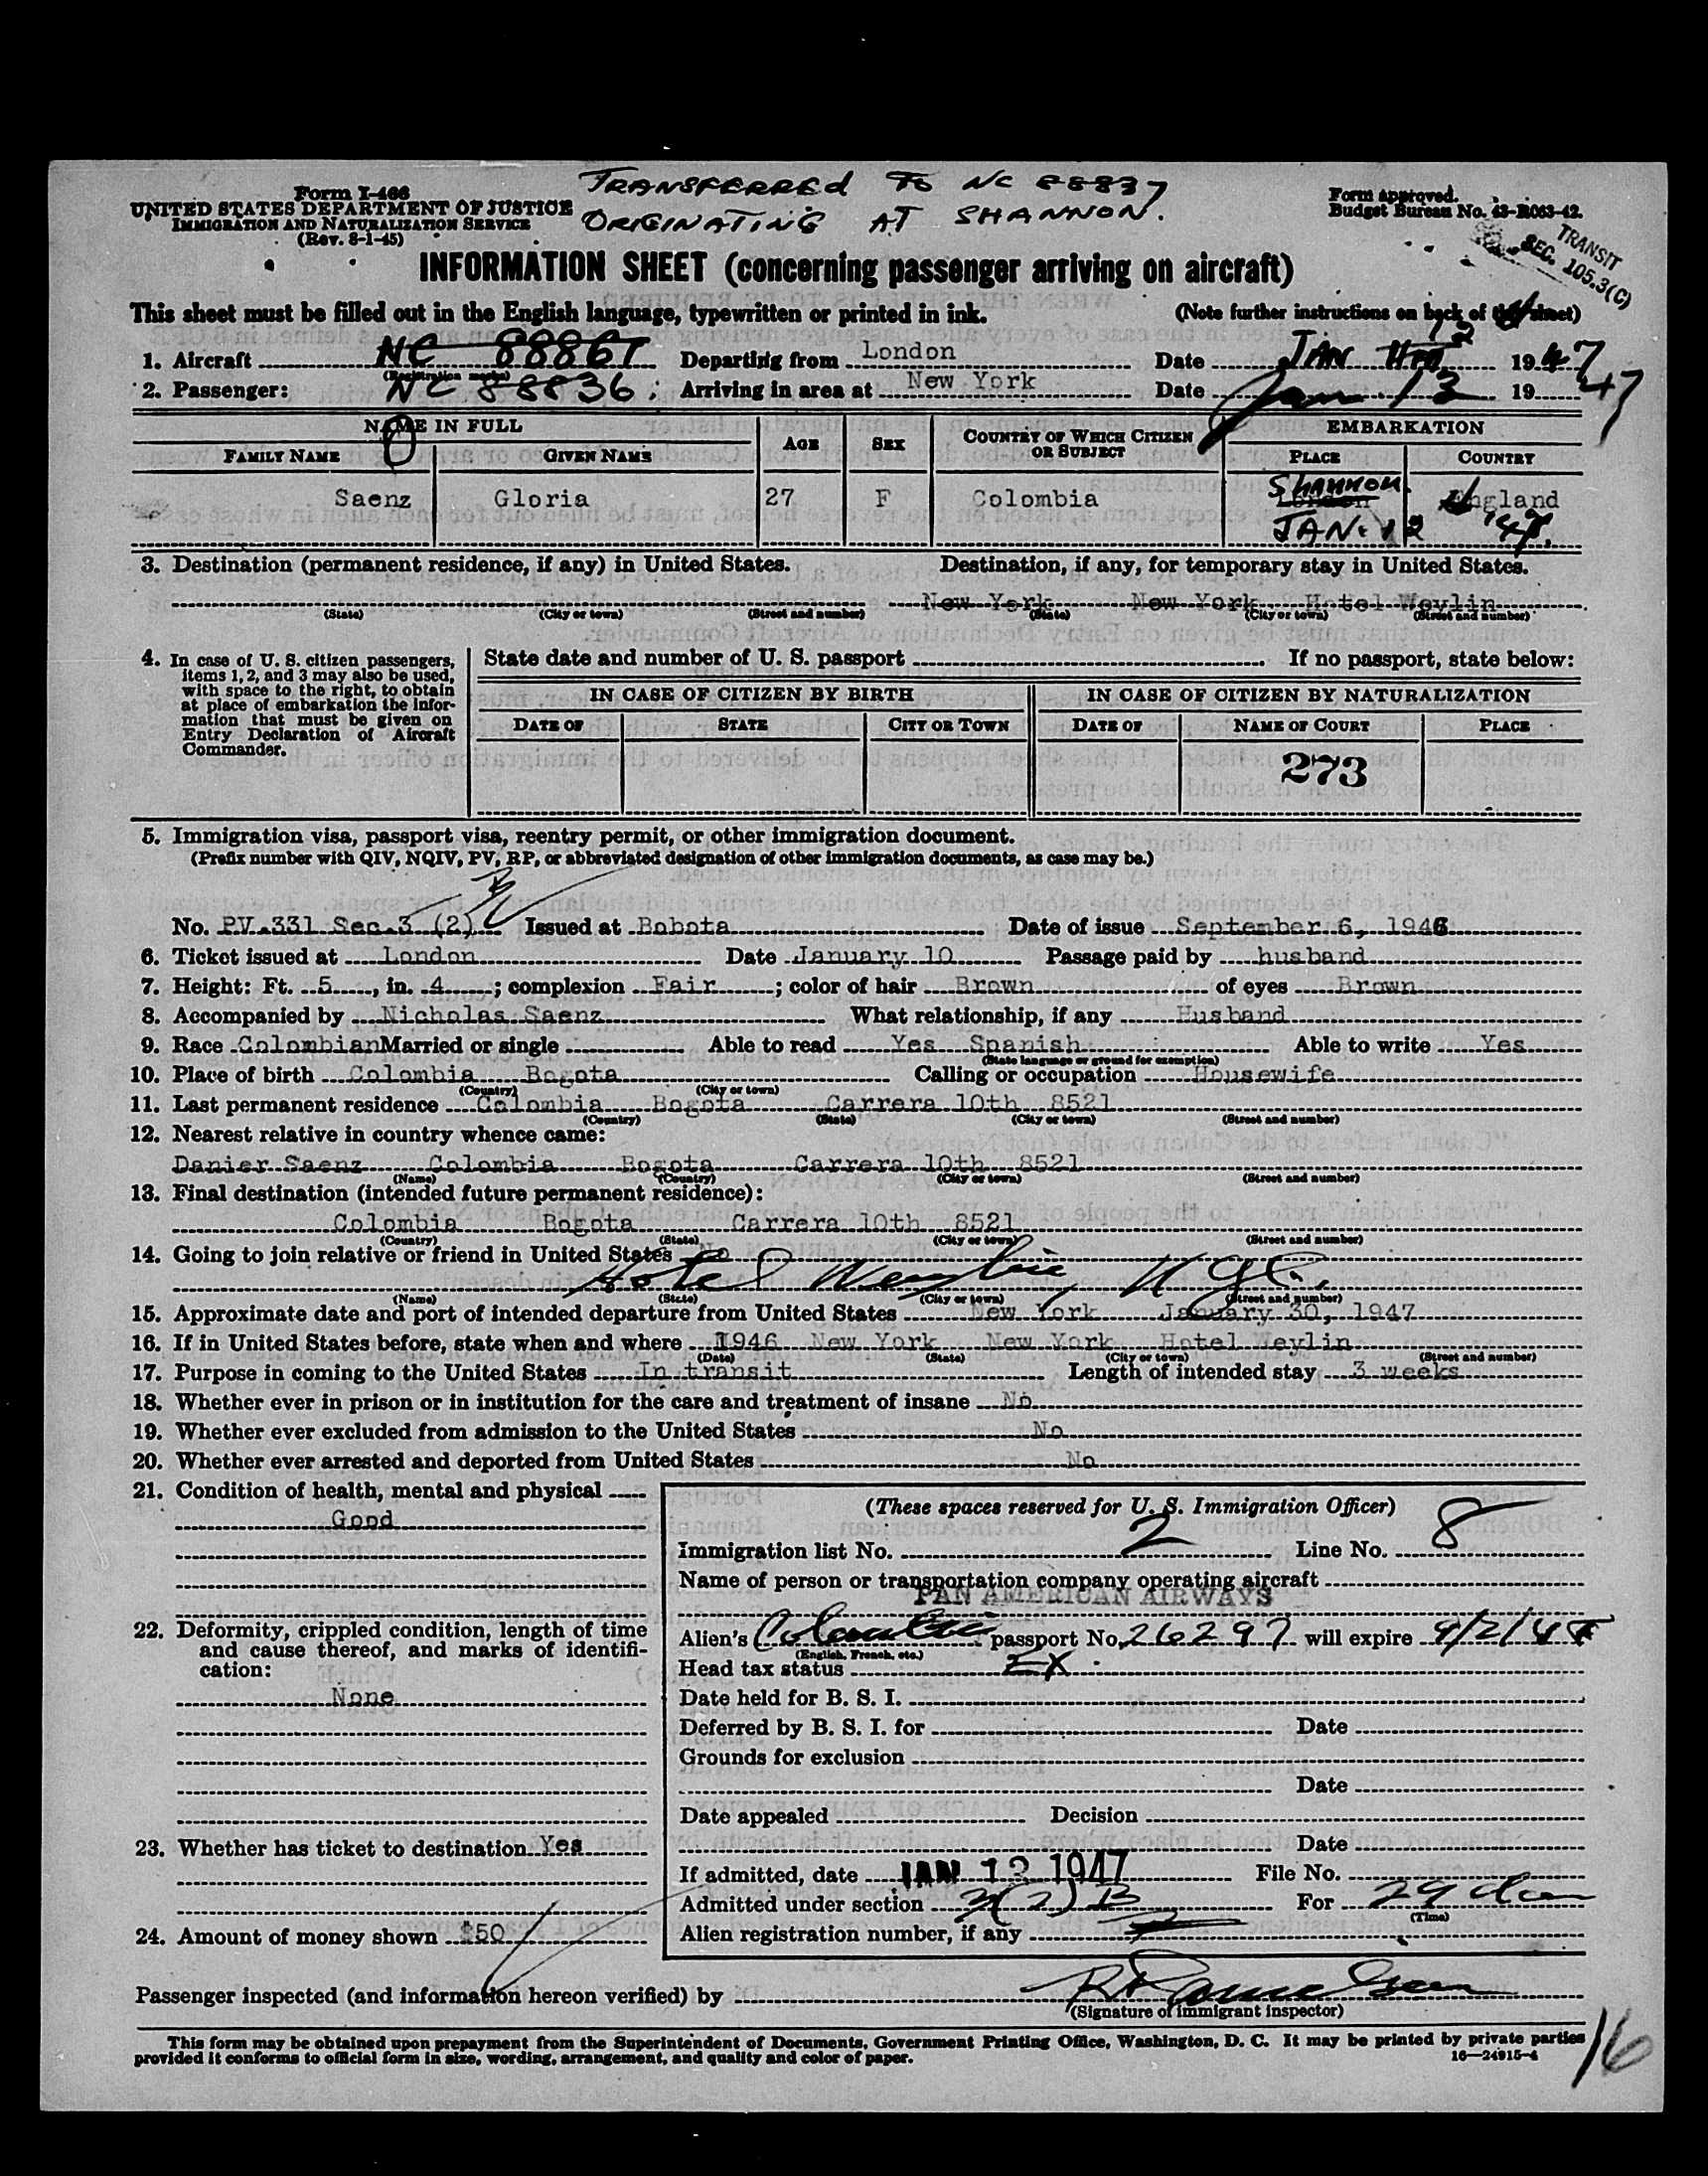 Form I-466
UNITED STATES DEPARTMENT OF JUSTICE
IMMIGRATION AND NATURALIZATION SERVICE
(Rev. 8-1-45)
TRANSFERRED TO NC 88837
ORIGINATING AT SHANNON.
Form approved.
Budget Bureau No. 43-R063-42.
TRANSIT
SEC. 105.3(C)
INFORMATION SHEET (concerning passenger arriving on aircraft)
This sheet must be filled out in the English language, typewritten or printed in ink. (Note further instructions on back of this sheet)
1. Aircraft NC 88861 Departing from London Date JAN 12 1947
(Registration marks)
2. Passenger: NC 88836 Arriving in area at New York Date Jan 13 1947
NAME IN FULL AGE SEX COUNTRY OF WHICH CITIZEN OR SUBJECT EMBARKATION
FAMILY NAME GIVEN NAME PLACE COUNTRY
Saenz Gloria 27 F Colombia SHANNON London England
JAN. 12 '47.
3. Destination (permanent residence, if any) in United States. Destination, if any, for temporary stay in United States.
New York New York Hotel Weylin
(State) (City or town) (Street and number) (State) (City or town) (Street and number)
4. In case of U. S. citizen passengers, items 1, 2, and 3 may also be used, with space to the right, to obtain at place of embarkation the information that must be given on Entry Declaration of Aircraft Commander.
State date and number of U. S. passport If no passport, state below:
IN CASE OF CITIZEN BY BIRTH IN CASE OF CITIZEN BY NATURALIZATION
DATE OF STATE CITY OR TOWN DATE OF NAME OF COURT PLACE
273
5. Immigration visa, passport visa, reentry permit, or other immigration document.
(Prefix number with QIV, NQIV, PV, RP, or abbreviated designation of other immigration documents, as case may be.)
No. PV.331 Sec.3 (2) Issued at Bobota Date of issue September 6, 1946
6. Ticket issued at London Date January 10 Passage paid by husband
7. Height: Ft. 5, in. 4; complexion Fair; color of hair Brown of eyes Brown
8. Accompanied by Nicholas Saenz What relationship, if any Husband
9. Race Colombian Married or single Able to read Yes Spanish Able to write Yes
(State language or ground for exemption)
10. Place of birth Colombia Bogota Calling or occupation Housewife
(Country) (City or town)
11. Last permanent residence Colombia Bogota Carrera 10th 8521
(Country) (State) (City or town) (Street and number)
12. Nearest relative in country whence came:
Danier Saenz Colombia Bogota Carrera 10th 8521
(Name) (Country) (City or town) (Street and number)
13. Final destination (intended future permanent residence):
Colombia Bogota Carrera 10th 8521
(Country) (State) (City or town) (Street and number)
14. Going to join relative or friend in United States No
Hotel Weylin, N.Y.C.
(Name) (State) (City or town) (Street and number)
15. Approximate date and port of intended departure from United States New York January 30, 1947
16. If in United States before, state when and where 1946 New York New York Hotel Weylin
(Date) (State) (City or town) (Street and number)
17. Purpose in coming to the United States In transit Length of intended stay 3 weeks
18. Whether ever in prison or in institution for the care and treatment of insane No
19. Whether ever excluded from admission to the United States No
20. Whether ever arrested and deported from United States No
21. Condition of health, mental and physical
Good
22. Deformity, crippled condition, length of time and cause thereof, and marks of identification:
None
23. Whether has ticket to destination Yes
24. Amount of money shown $50
(These spaces reserved for U. S. Immigration Officer)
Immigration list No. 2 Line No. 8
Name of person or transportation company operating aircraft
PAN AMERICAN AIRWAYS
Alien's Colombia passport No. 26297 will expire 9/2/48
(English, French, etc.)
Head tax status EX
Date held for B. S. I.
Deferred by B. S. I. for Date
Grounds for exclusion
Date
Date appealed Decision
Date
If admitted, date JAN 13 1947 File No.
Admitted under section 3(2) B For 29 days
(Time)
Alien registration number, if any
Passenger inspected (and information hereon verified) by
(Signature of immigrant inspector)
This form may be obtained upon prepayment from the Superintendent of Documents, Government Printing Office, Washington, D. C. It may be printed by private parties
provided it conforms to official form in size, wording, arrangement, and quality and color of paper. 16—24915-4
16